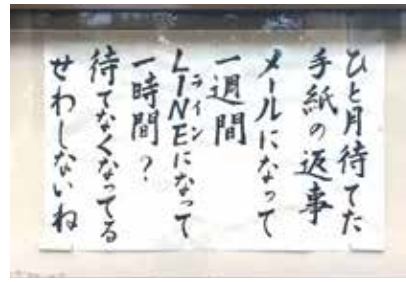 ひと月待てた
手紙の返事
メールになって
一週間
LINEになって
ライン
一時間？
待てなくなってる
せわしないね